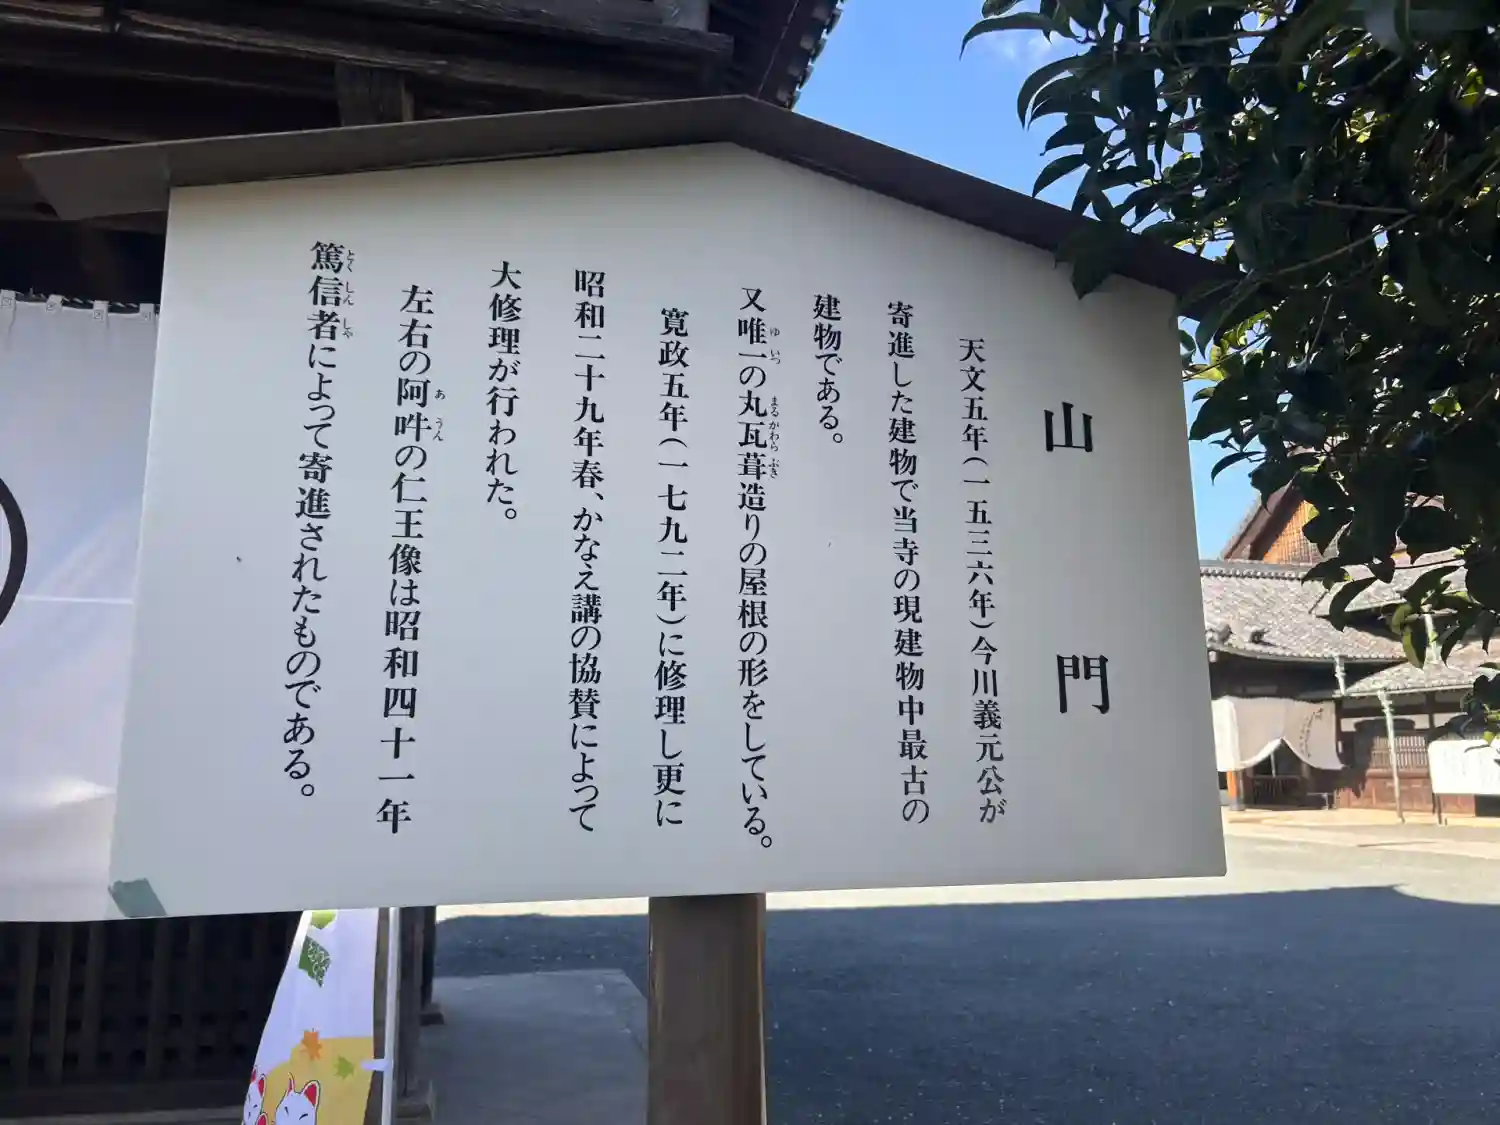 山門
天文五年(一五三六年)今川義元公が
寄進した建物で当寺の現建物中最古の
建物である。
又唯一の丸瓦葺造りの屋根の形をしている。
ゆいつ
まるがわらぶき
寛政五年(一七九二年)に修理し更に
昭和二十九年春、かなえ講の協賛によって
大修理が行われた。
左右の阿吽の仁王像は昭和四十一年
あうん
篤信者によって寄進されたものである。
とくしんしゃ